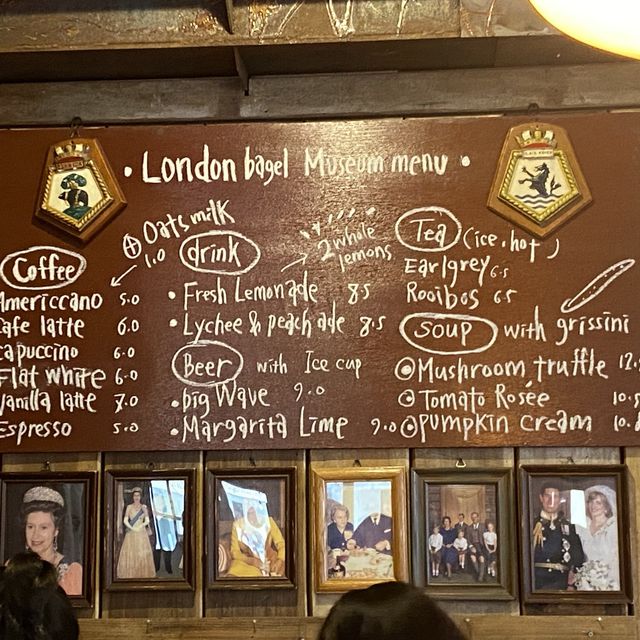 • London bagel Museum menu •
Coffee
⊕ Oats milk
1.0
Americcano 5.0
Cafe latte 6.0
capuccino 6.0
Flat White 6.0
Vanilla latte 7.0
Espresso 5.0
drink
2 whole
lemons
• Fresh Lemonade 8.5
• Lychee & peach ade 8.5
Beer with Ice cup
• big Wave 9.0
• Margarita Lime 9.0
Tea (ice, hot)
Earlgrey 6.5
Rooibos 6.5
Soup with grissini
Mushroom truffle 12.
Tomato Rosée 10.
pumpkin cream 10.